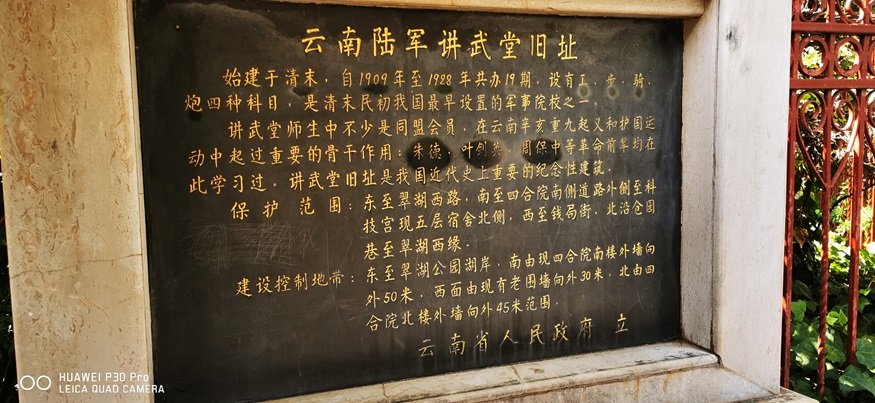 云南陆军讲武堂旧址
始建于清末，自1909年至1928年共办19期，设有工、步、骑、
炮四种科目，是清末民初我国最早设置的军事院校之一。
讲武堂师生中不少是同盟会员，在云南辛亥重九起义和护国运
动中起过重要的骨干作用；朱德、叶剑英、周保中等革命前辈均在
此学习过。讲武堂旧址是我国近代史上重要的纪念性建筑。
保护范围：东至翠湖西路，南至四合院南侧道路外侧至科
技宫现五层宿舍北侧，西至钱局街，北沿仓园
巷至翠湖西缘。
建设控制地带：东至翠湖公园湖岸，南由现四合院南楼外墙向
外50米，西面由现有老围墙向外30米，北由四
合院北楼外墙向外45米范围。
云南省人民政府 立
HUAWEI P30 Pro
LEICA QUAD CAMERA